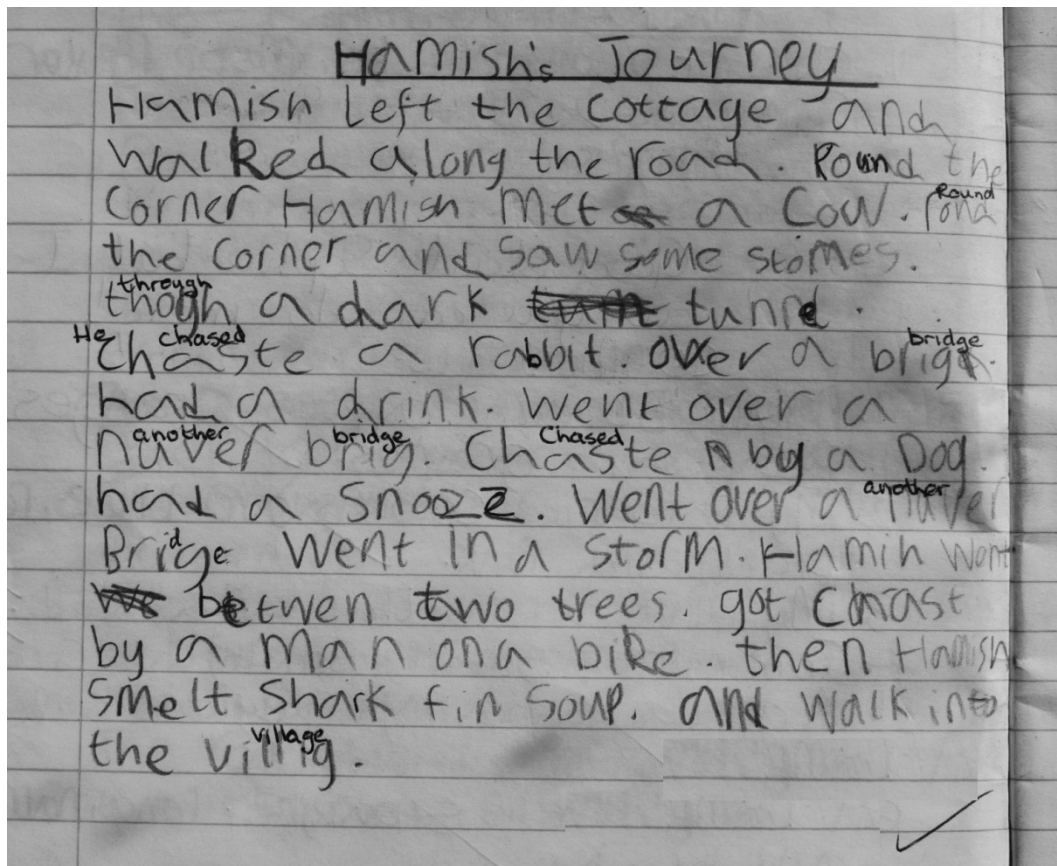 Hamish's Journey
Hamish left the cottage and
walked along the road. Round the
Round
corner Hamish met a cow. rond
the corner and saw some stomes.
through
thogh a dark tunnel.
He chased bridge
chaste a rabbit. over a brige.
had a drink. went over a
another bridge Chased
nuver brig. Chaste by a Dog.
another
had a snooze. Went over a nuver
d
Brige went in a storm. Hamih went
betwen two trees. got chast
by a man on a bike. then Hamish
smelt shark fin soup. and walk into
village
the villig.